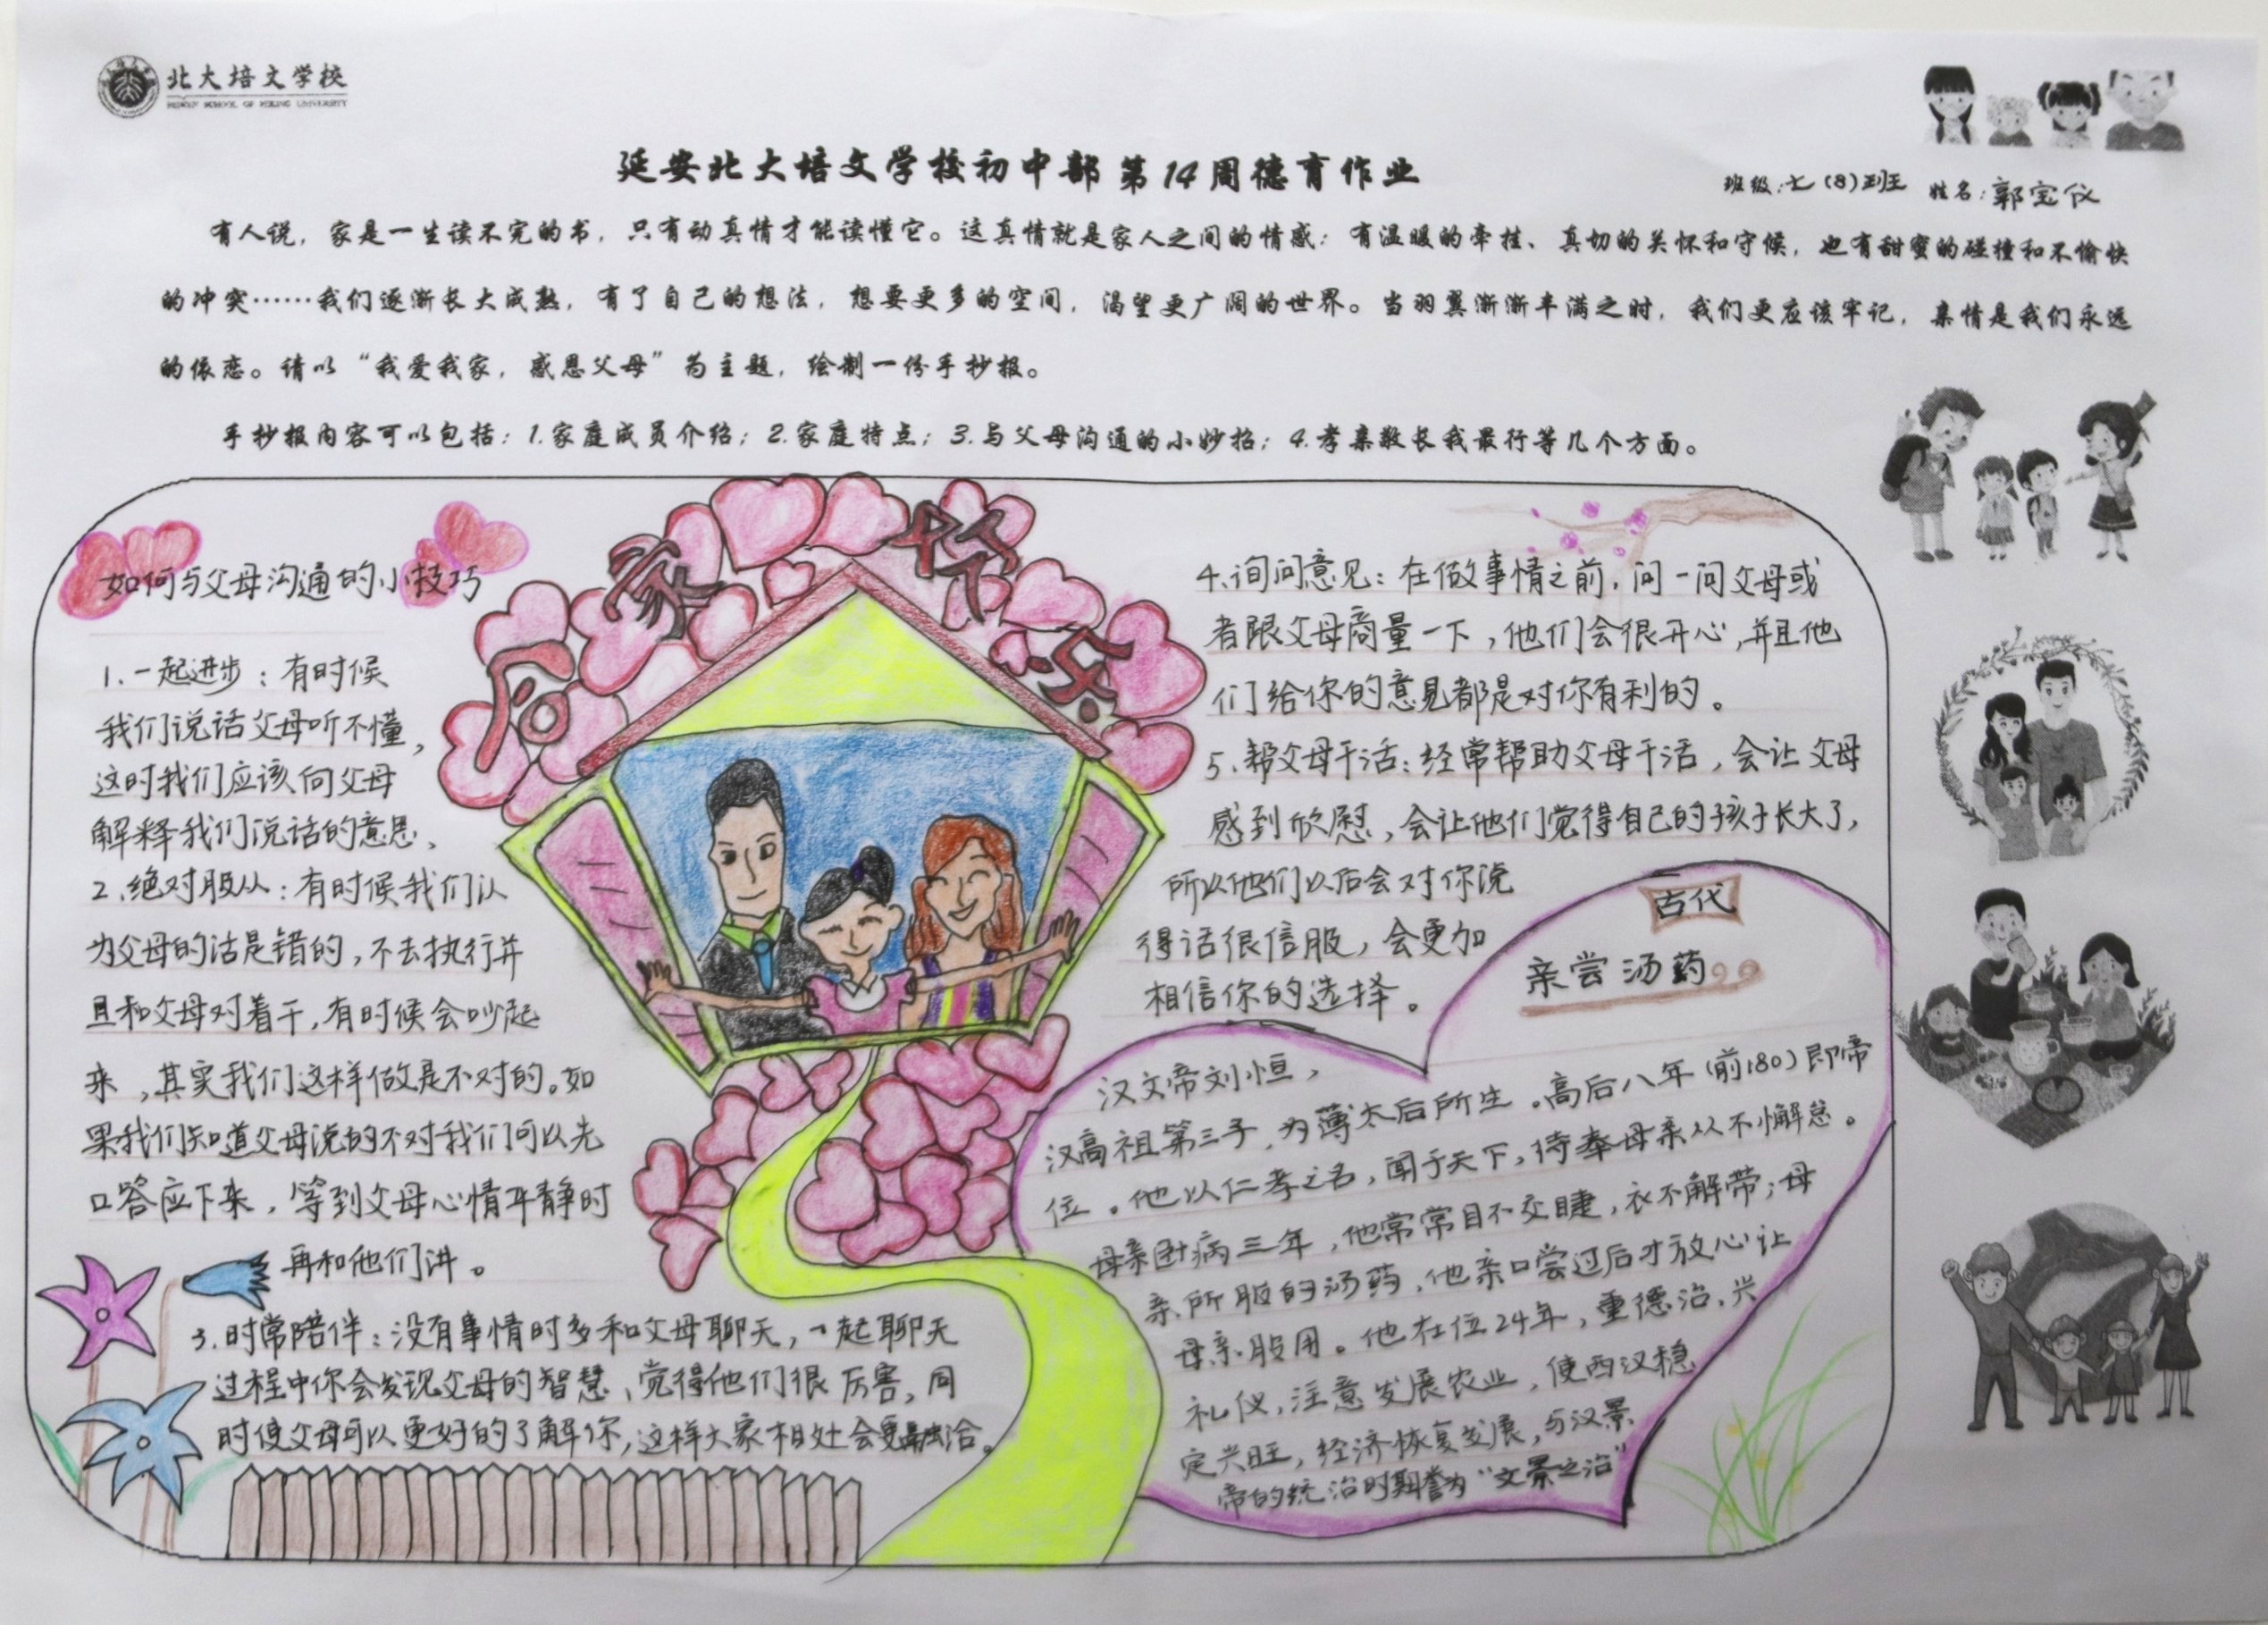 北大培文学校
PEIWEN SCHOOL OF PEKING UNIVERSITY
延安北大培文学校初中部第14周德育作业
班级：七（8）班 姓名：郭宝仪
有人说，家是一生读不完的书，只有动真情才能读懂它。这真情就是家人之间的情感：有温暖的牵挂、真切的关怀和守候，也有甜蜜的碰撞和不愉快
的冲突……我们逐渐长大成熟，有了自己的想法，想要更多的空间，渴望更广阔的世界。当羽翼渐渐丰满之时，我们更应该牢记，亲情是我们永远
的依恋。请以“我爱我家，感恩父母”为主题，绘制一份手抄报。
手抄报内容可以包括：1.家庭成员介绍；2.家庭特点；3.与父母沟通的小妙招；4.孝亲敬长我最行等几个方面。
合家欢乐
如何与父母沟通的小技巧
1、一起进步：有时候
我们说话父母听不懂，
这时我们应该向父母
解释我们说话的意思、
2、绝对服从：有时候我们认
为父母的话是错的，不去执行并
且和父母对着干，有时候会吵起
来，其实我们这样做是不对的。如
果我们知道父母说的不对我们可以先
口答应下来，等到父母心情平静时
再和他们讲。
3、时常陪伴：没有事情时多和父母聊天，一起聊天
过程中你会发现父母的智慧、觉得他们很厉害，同
时使父母可以更好的了解你，这样大家相处会更融洽。
4、询问意见：在做事情之前，问一问父母或
者跟父母商量一下，他们会很开心，并且他
们给你的意见都是对你有利的。
5、帮父母干活：经常帮助父母干活，会让父母
感到欣慰，会让他们觉得自己的孩子长大了，
所以他们以后会对你说
得话很信服，会更加
相信你的选择。
古代
亲尝汤药
汉文帝刘恒，
汉高祖第三子，为薄太后所生。高后八年（前180）即帝
位。他以仁孝之名，闻于天下，侍奉母亲从不懈怠。
母亲卧病三年，他常常目不交睫，衣不解带；母
亲所服的汤药，他亲口尝过后才放心让
母亲服用。他在位24年，重德治、兴
礼仪，注意发展农业，使西汉稳
定兴旺，经济恢复发展，与汉景
帝的统治时期誉为“文景之治”